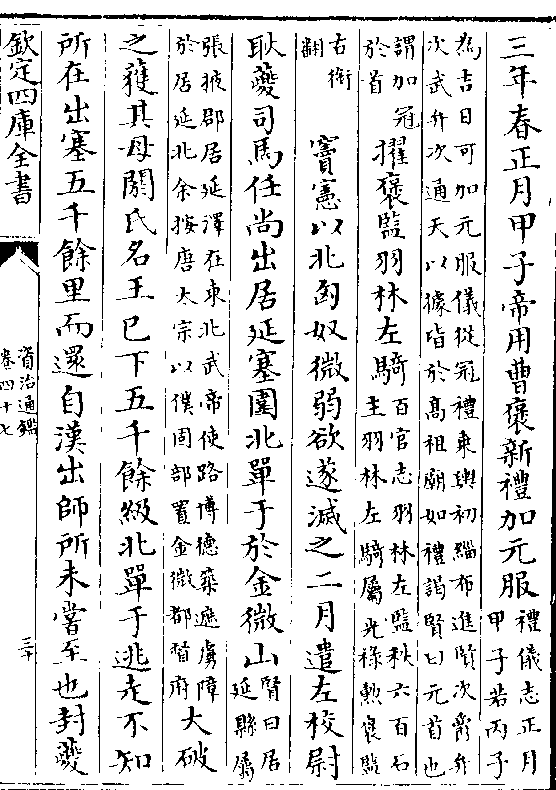 三年春正月甲子帝用曹褒新禮加元服禮儀志正月甲子若丙子
為吉日可加元服儀從冠禮乘輿初緇布進賢次爵弁次武弁次通天以據皆於高祖廟如禮謁賢曰元首也
謂加冠於首擢褒監羽林左騎百官志羽林左監秩六百石主羽林左騎屬光祿勲褒監
古銜翻竇憲以北匈奴微弱欲遂滅之二月遣左校尉
耿夔司馬任尚出居延塞圍北單于於金微山賢曰居延縣屬
張掖郡居延澤在東北武帝使路博德築遮虜障於居延北余按唐太宗以僕固部置金微都督府大破
之獲其母閼氏名王已下五千餘級北單于逃走不知
所在出塞五千餘里而還自漢出師所未嘗至也封夔
欽定四庫全書
資治通鑑
卷四十七
三十